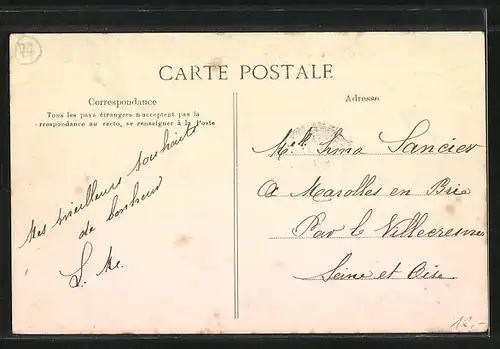 77
CARTE POSTALE
Correspondance
Tous les pays étrangers n'acceptent pas la
correspondance au recto, se renseigner à la Poste
Adresse
Mes meilleurs souhaits
de bonheur
Melle Irma Sancier
à Marolles en Brie
Par le Villecresnes
Seine et Oise
12,-